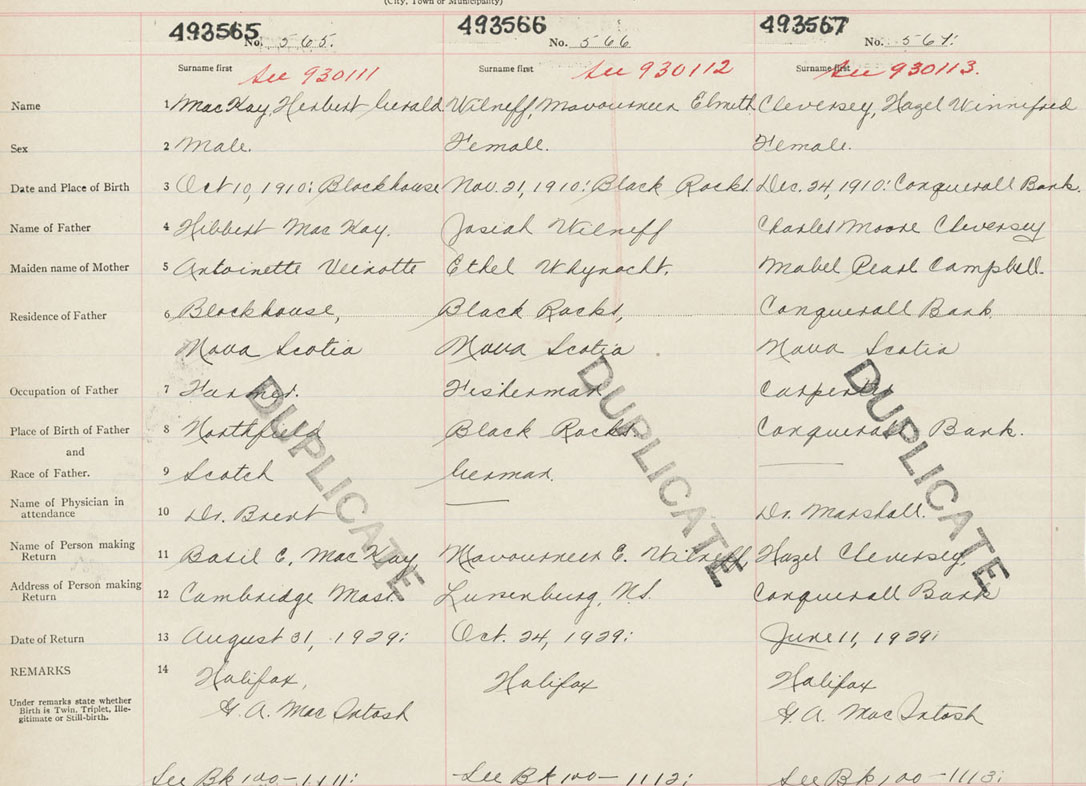 (City, Town or Municipality)
493565 No. 565. 493566 No. 566 493567 No. 567.
Surname first See 930111 Surname first See 930112 Surname first See 930113.
Name 1 MacKay, Herbert Gerald Wilneff, Mavourneen Elmith Cleversey, Hazel Winnifred
Sex 2 Male. Female. Female.
Date and Place of Birth 3 Oct 10, 1910: Blockhouse Nov. 21, 1910: Black Rocks. Dec. 24, 1910: Conquerall Bank.
Name of Father 4 Hibbert MacKay. Josiah Wilneff Charles Moore Cleversey
Maiden name of Mother 5 Antoinette Veinotte Ethel Whynacht. Mabel Pearl Campbell.
Residence of Father 6 Blockhouse, Black Rocks, Conquerall Bank.
Nova Scotia Nova Scotia Nova Scotia
Occupation of Father 7 Farmer. Fisherman Carpenter
Place of Birth of Father 8 Northfield Black Rocks. Conquerall Bank.
and
Race of Father. 9 Scotch German.
Name of Physician in
attendance 10 Dr. Brent Dr. Marshall.
Name of Person making
Return 11 Basil C. MacKay Mavourneen E. Wilneff Hazel Cleversey,
Address of Person making
Return 12 Cambridge Mass. Lunenburg, N.S. Conquerall Bank
Date of Return 13 August 31, 1929: Oct. 24, 1929: June 11, 1929:
REMARKS 14 Halifax, Halifax Halifax
Under remarks state whether
Birth is Twin, Triplet, Ille-
gitimate or Still-birth.
G. A. MacIntosh G. A. MacIntosh
See Bk 100-1111: See Bk 100-1112: See Bk 100-1113:
DUPLICATE DUPLICATE DUPLICATE